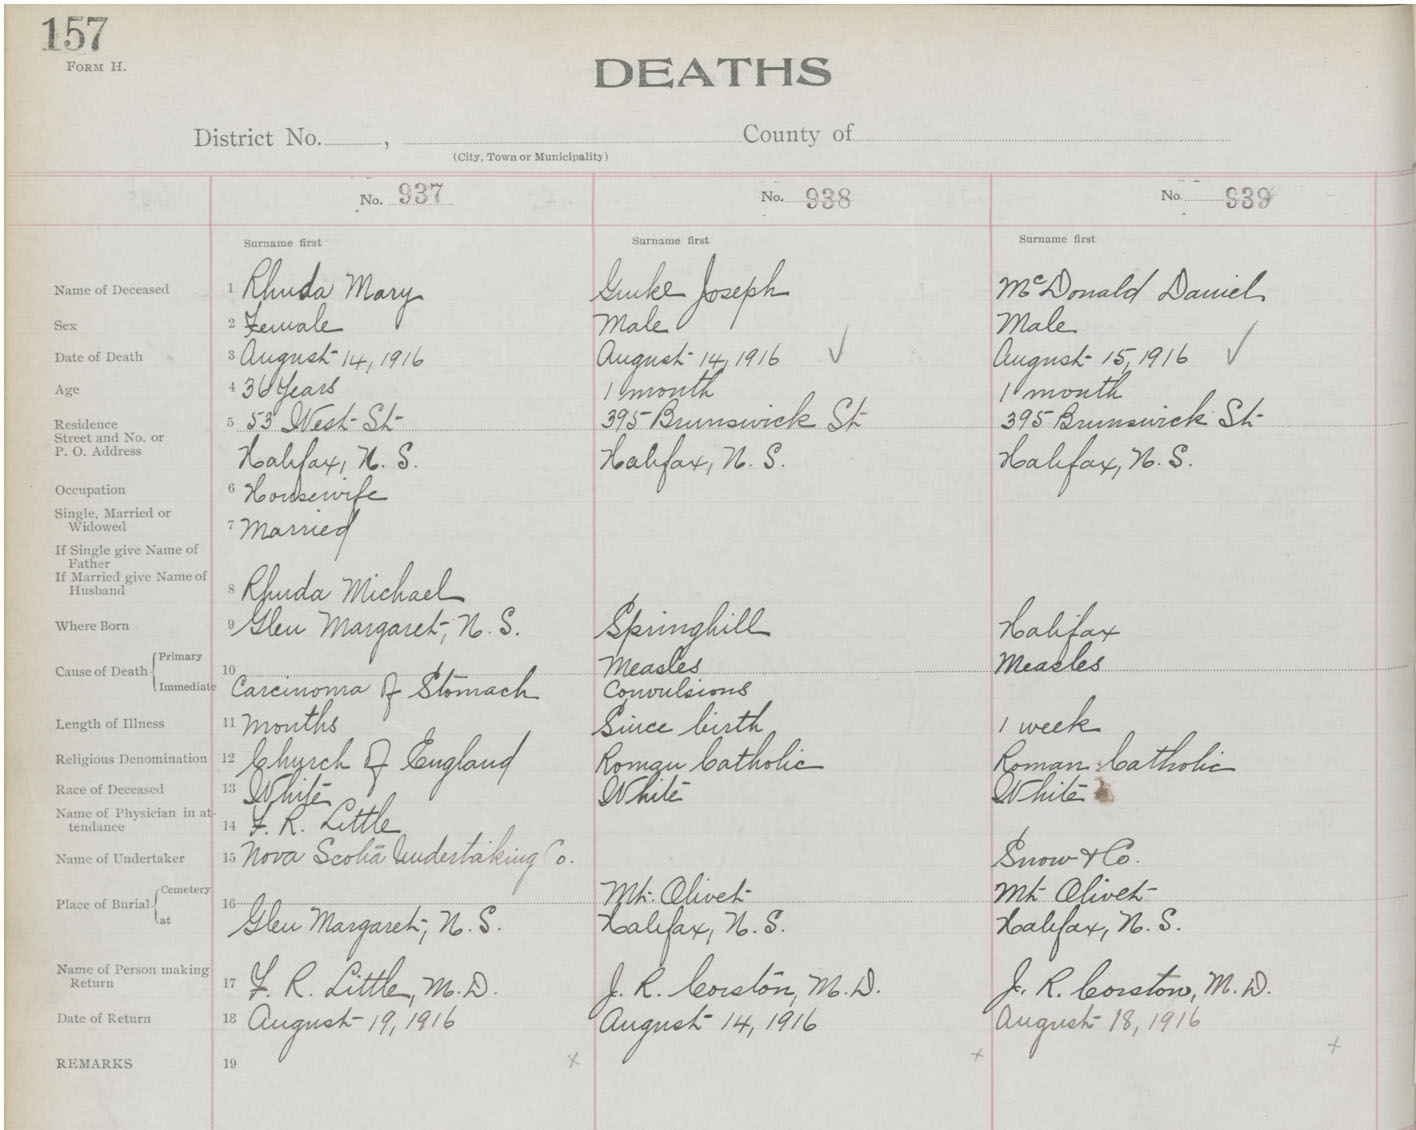 157
FORM H.
DEATHS
District No. , County of
(City, Town or Municipality)
No. 937 No. 938 No. 939
Surname first Surname first Surname first
Name of Deceased 1 Rhuda Mary Guike Joseph McDonald Daniel
Sex 2 Female Male Male
Date of Death 3 August 14, 1916 August 14, 1916 ✓ August 15, 1916 ✓
Age 4 36 Years 1 month 1 month
Residence 5 53 West St 395 Brunswick St 395 Brunswick St
Street and No. or
P. O. Address Halifax, N. S. Halifax, N. S. Halifax, N. S.
Occupation 6 Housewife
Single, Married or
Widowed 7 Married
If Single give Name of
Father
If Married give Name of
Husband 8 Rhuda Michael
Where Born 9 Glen Margaret, N. S. Springhill Halifax
Cause of Death Primary 10 Measles Measles
Immediate Carcinoma of Stomach Convulsions
Length of Illness 11 months Since birth 1 week
Religious Denomination 12 Chyrch of England Roman Catholic Roman Catholic
Race of Deceased 13 White White White
Name of Physician in at-
tendance 14 F. R. Little
Name of Undertaker 15 Nova Scotia Undertaking Co. Snow & Co.
Place of Burial Cemetery 16 Mt. Olivet Mt Olivet
at Glen Margaret, N. S. Halifax, N. S. Halifax, N. S.
Name of Person making
Return 17 F. R. Little, M. D. J. R. Corston, M. D. J. R. Corston, M. D.
Date of Return 18 August 19, 1916 August 14, 1916 August 18, 1916
REMARKS 19 x x x